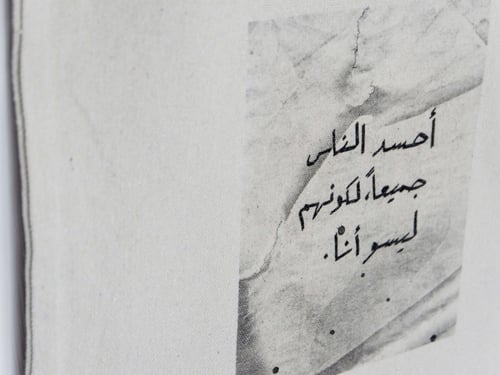 أحسد الناس
جميعاً، لكونهم
ليسو أنا.